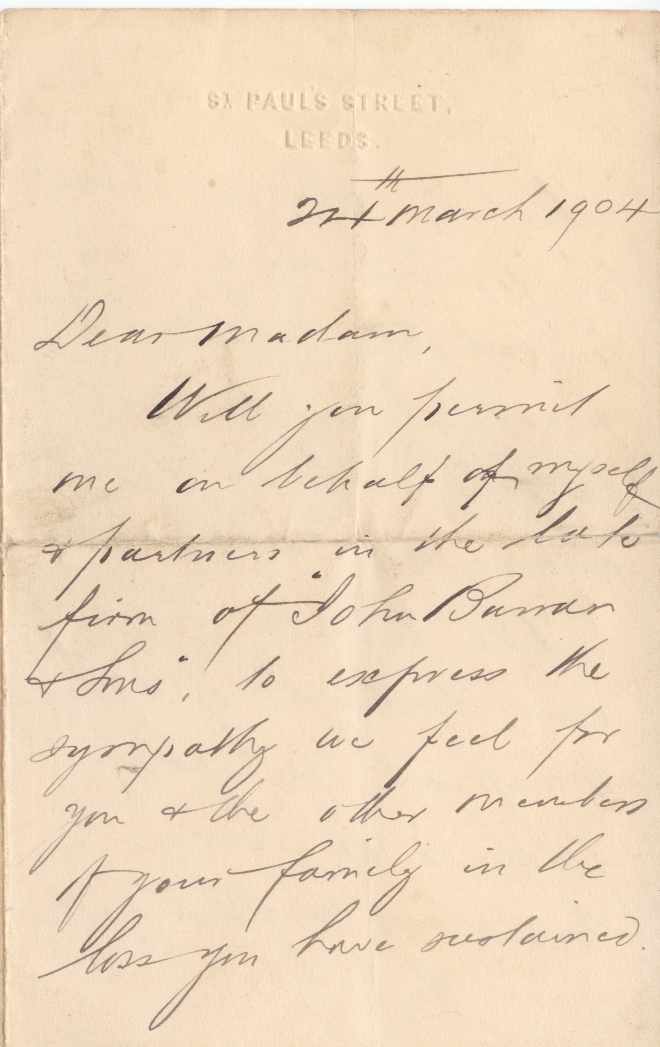 ST. PAUL'S STREET,
LEEDS.
24th March 1904
Dear Madam,
Will you permit
me on behalf of myself
& partners in the late
firm of "John Barran
& Sons", to express the
sympathy we feel for
you & the other members
of your family in the
loss you have sustained.